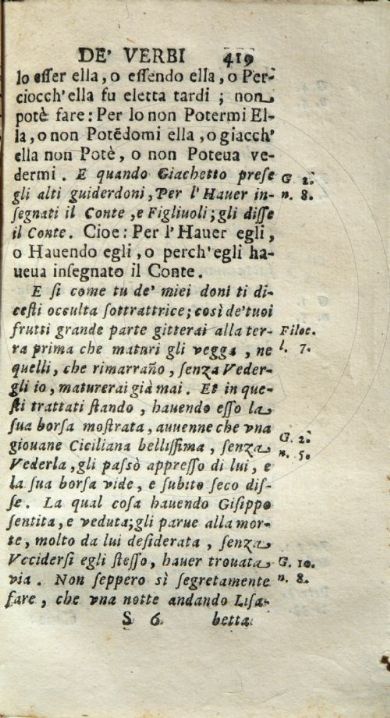 DE' VERBI 419
lo esser ella, o essendo ella, o Per-
ciocch'ella fu eletta tardi; non
potè fare: Per lo non Potermi El-
la, o non Potēdomi ella, o giacch'
ella non Potè, o non Poteua ve-
dermi. E quando Giachetto prese G 2.
gli alti guiderdoni, Per l'Hauer in- n. 8.
segnati il Conte, e Figliuoli; gli disse
il Conte. Cioe: Per l'Hauer egli,
o Hauendo egli, o perch'egli ha-
ueua insegnato il Conte.
E si come tu de' miei doni ti di-
cesti occulta sottrattrice; così de'tuoi
frutti grande parte gitterai alla ter- Filoc.
ra prima che maturi gli vegga, ne l. 7.
quelli, che rimarrāno, senza Veder-
gli io, maturerai già mai. Et in que-
sti trattati stando, hauendo esso la
sua borsa mostrata, auuenne che vna
giouane Ciciliana bellissima, senza G. 2.
Vederla, gli passò appresso di lui, e n. 5.
la sua borsa vide, e subito seco dis-
se. La qual cosa hauendo Gisippo
sentita, e veduta; gli parue alla mor-
te, molto da lui desiderata, senza
Vccidersi egli stesso, hauer trouata G. 10.
via. Non seppero sì segretamente n. 8.
fare, che vna notte andando Lisa-
S 6. betta